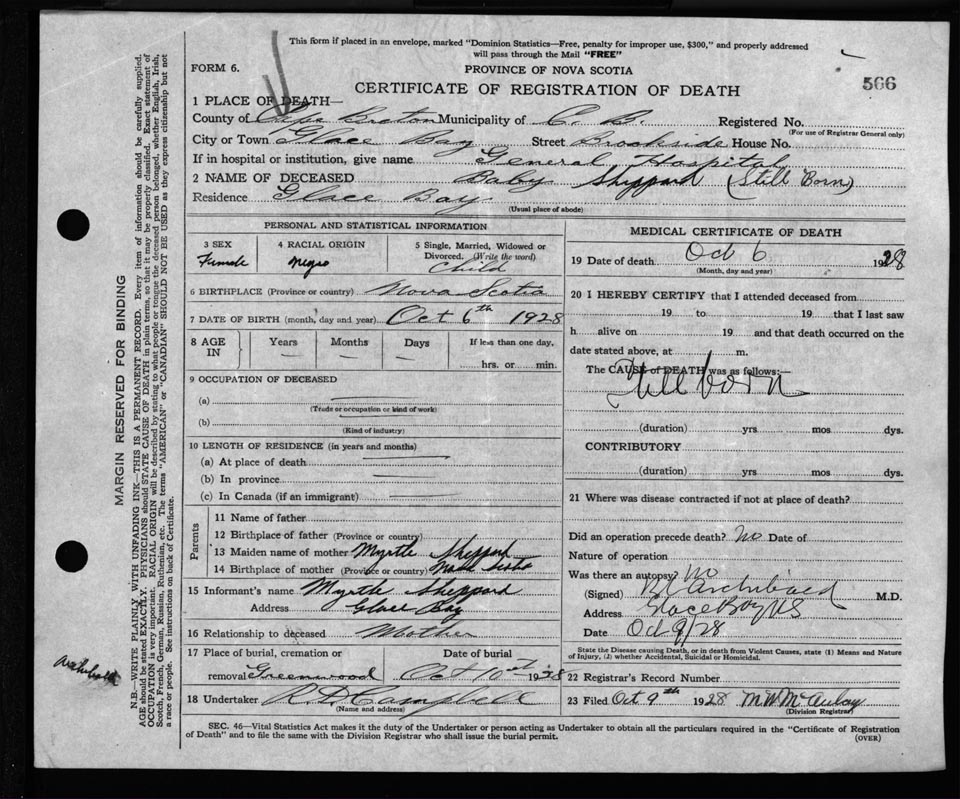 This form if placed in an envelope, marked "Dominion Statistics—Free, penalty for improper use, $300," and properly addressed
will pass through the Mail "FREE"
FORM 6. PROVINCE OF NOVA SCOTIA
566
CERTIFICATE OF REGISTRATION OF DEATH
1 PLACE OF DEATH—
County of Cape Breton Municipality of C. B. Registered No.
(For use of Registrar General only)
City or Town Glace Bay Street Brookside House No.
If in hospital or institution, give name General Hospital
2 NAME OF DECEASED Baby Sheppard (Still Born)
Residence Glace Bay
(Usual place of abode)
PERSONAL AND STATISTICAL INFORMATION
3 SEX 4 RACIAL ORIGIN 5 Single, Married, Widowed or
Divorced. (Write the word)
Female Negro Child
6 BIRTHPLACE (Province or country) Nova Scotia
7 DATE OF BIRTH (month, day and year) Oct 6th 1928
8 AGE IN Years Months Days If less than one day,
— — — hrs. or min.
9 OCCUPATION OF DECEASED
(a)
(Trade or occupation or kind of work)
(b)
(Kind of industry)
10 LENGTH OF RESIDENCE (in years and months)
(a) At place of death
(b) In province
(c) In Canada (if an immigrant)
Parents
11 Name of father
12 Birthplace of father (Province or country)
13 Maiden name of mother Myrtle Sheppard
14 Birthplace of mother (Province or country) Nova Scotia
15 Informant's name Myrtle Sheppard
Address Glace Bay
16 Relationship to deceased Mother
17 Place of burial, cremation or Date of burial
removal Greenwood Oct 10th 1928
18 Undertaker R. D. Campbell
(Name and address)
MEDICAL CERTIFICATE OF DEATH
19 Date of death Oct 6 1928
(Month, day and year)
20 I HEREBY CERTIFY that I attended deceased from
19 to 19 that I last saw
h alive on 19 and that death occurred on the
date stated above, at m.
The CAUSE of DEATH was as follows:—
Stillborn
(duration) yrs mos dys.
CONTRIBUTORY
(duration) yrs mos dys.
21 Where was disease contracted if not at place of death?
Did an operation precede death? No Date of
Nature of operation
Was there an autopsy? No
(Signed) Archibald M.D.
Address Glace Bay NS
Date Oct 9/28
State the Disease causing Death, or in death from Violent Causes, state (1) Means and Nature
of Injury, (2) whether Accidental, Suicidal or Homicidal.
22 Registrar's Record Number
23 Filed Oct 9th 1928 M W McAulay
(Division Registrar)
SEC. 46—Vital Statistics Act makes it the duty of the Undertaker or person acting as Undertaker to obtain all the particulars required in the "Certificate of Registration
of Death" and to file the same with the Division Registrar who shall issue the burial permit.
(OVER)
MARGIN RESERVED FOR BINDING
N.B.—WRITE PLAINLY WITH UNFADING INK—THIS IS A PERMANENT RECORD. Every item of information should be carefully supplied.
AGE should be stated EXACTLY. PHYSICIANS should STATE CAUSE OF DEATH in plain terms, so that it may be properly classified. Exact statement of
OCCUPATION is very important. RACIAL ORIGIN will be described by stating to what people or tongue the deceased person belonged, whether English, Irish,
Scotch, French, German, Russian, Ruthenian, etc. The terms "AMERICAN" or "CANADIAN" SHOULD NOT BE USED as they express citizenship but not
a race or people. See instructions on back of Certificate.
Archibald